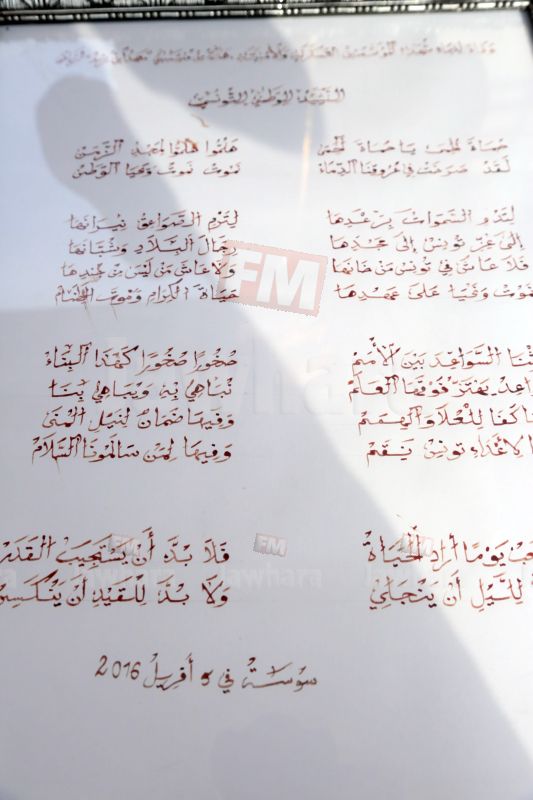 النشيد الوطني التونسي
حماة الحمى يا حماة الحمى هلموا هلموا لمجد الزمن
لقد صرخت في عروقنا الدماء نموت نموت ويحيا الوطن
لتدو السموات برعدها لترم الصواعق نيرانها
إلى عز تونس إلى مجدها رجال البلاد وشبانها
فلا عاش في تونس من خانها ولا عاش من ليس من جندها
نموت ونحيا على عهدها حياة الكرام وموت العظام
السواعد بين الأمم صخورا صخورا كهذا البناء
يهتز فوقها العلم نباهي به ويباهي بنا
كفا للعلا والهمم وفيها ضمان لنيل المنى
لأعداء تونس نقم وفيها لمن سالمونا السلام
يوما أراد الحياة فلا بد أن يستجيب القدر
لليل أن ينجلي ولا بد للقيد أن ينكسر
سوسة في 5 أفريل 2016
FM
FM
Jawhara
FM
Jawhara